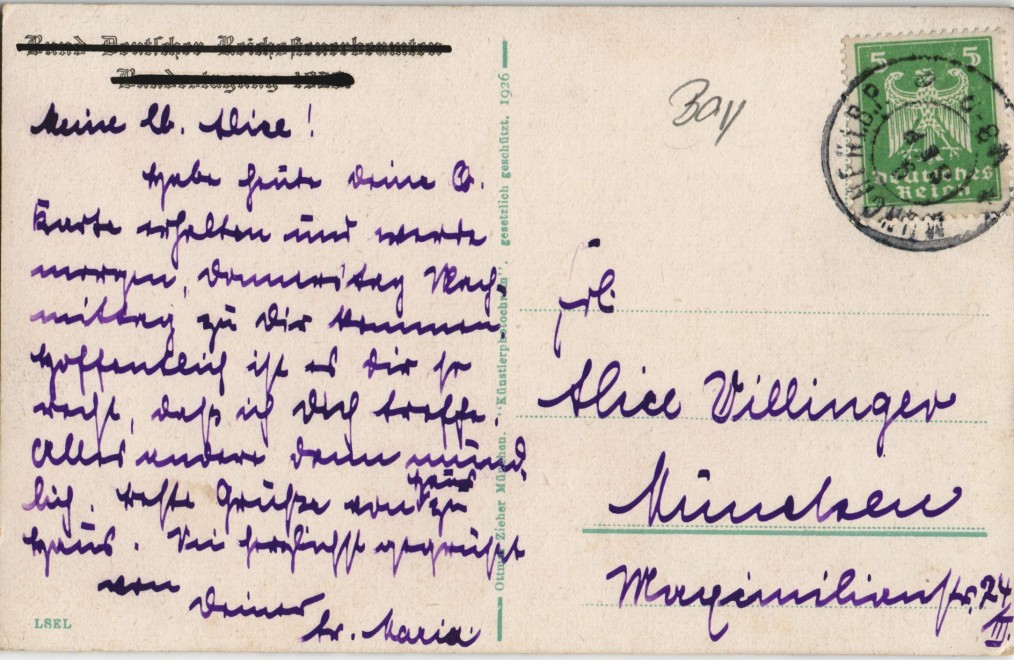 Bund Deutscher Reichssteuerbeamten
Bundestagung
Meine lb. Alice!
Habe heute deine lb.
Karte erhalten und werde
morgen, Donnerstag Nach-
mittag zu dir kommen.
Hoffentlich ist es dir so
recht, daß ich dich treffe.
Alles andere dann münd-
lich. Beste Grüße von Haus zu
Haus. Sei herzlichst gegrüßt
von
Deiner
tr. Maria
LSEL
Ottmar Zieher München. "Künstlerphotochrom", gesetzlich geschützt. 1926
Bay
5 5
Deutsches
Reich
MÜNCHEN
Frl.
Alice Villinger
München
Maximilianstr. 24
III.